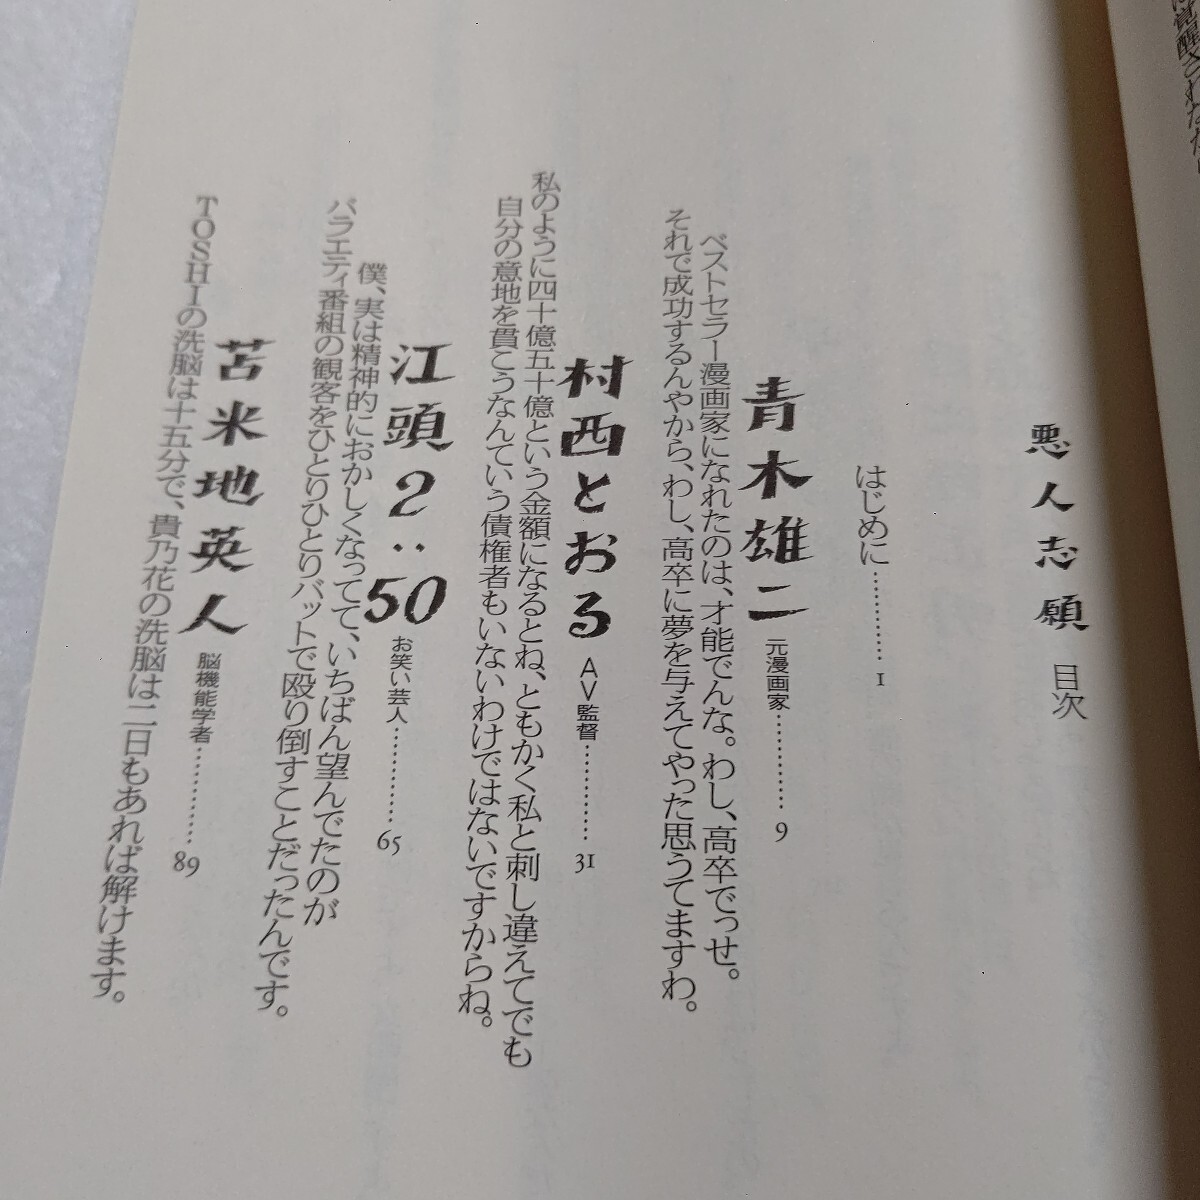 悪人志願 目次
はじめに…………1
青木雄二 元漫画家…………9
ベストセラー漫画家になれたのは、才能でんな。わし、高卒でっせ。
それで成功するんやから、わし、高卒に夢を与えてやった思うてますわ。
村西とおる AV監督…………31
私のように四十億五十億という金額になるとね、ともかく私と刺し違えてでも
自分の意地を貫こうなんていう債権者もいないわけではないですからね。
江頭2:50 お笑い芸人…………65
僕、実は精神的におかしくなってて、いちばん望んでたのが
バラエティ番組の観客をひとりひとりバットで殴り倒すことだったんです。
苫米地英人 脳機能学者…………89
TOSHIの洗脳は十五分で、貴乃花の洗脳は二日もあれば解けます。